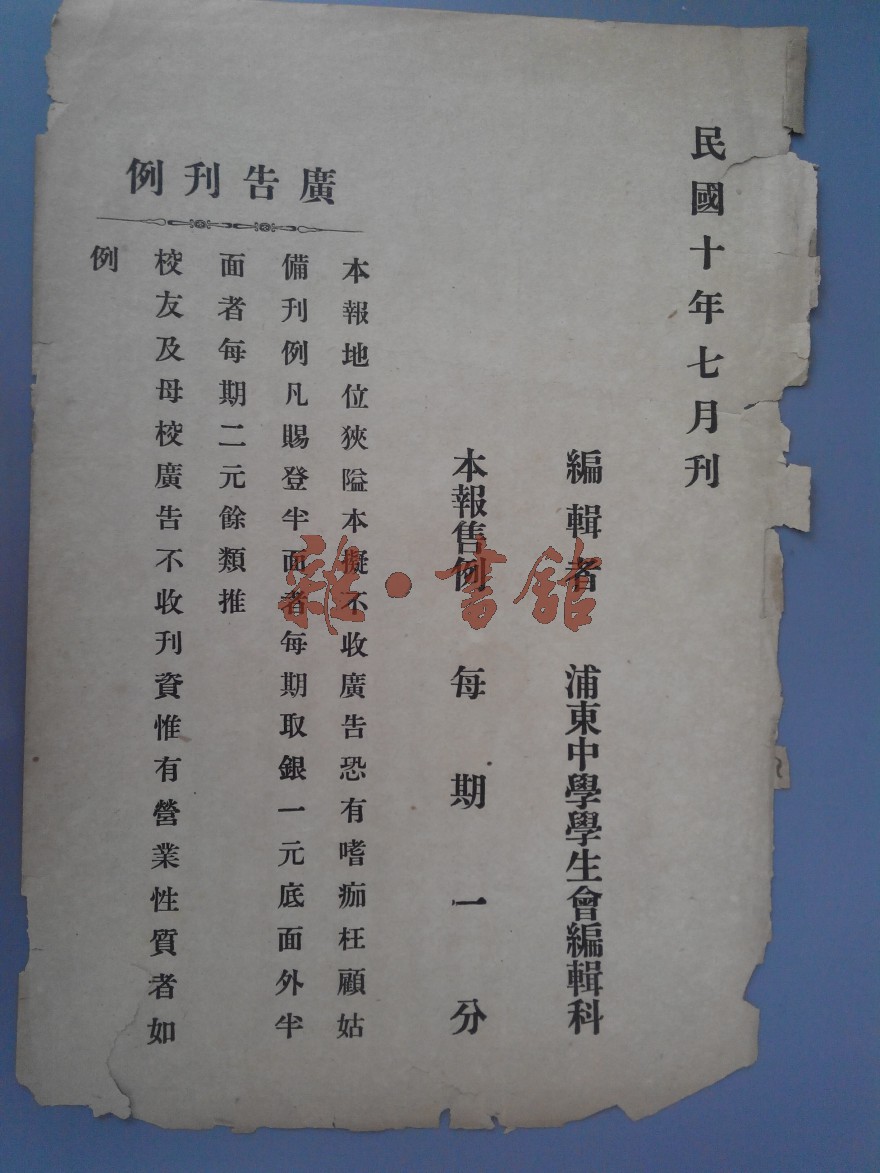 民國十年七月刊
編輯者 浦東中學學生會編輯科
本報售例 每期一分
廣告刊例
本報地位狹隘本擬不收廣告恐有嗜痂枉顧姑
備刊例凡賜登半面者每期取銀一元底面外半
面者每期二元餘類推
校友及母校廣告不收刊資惟有營業性質者如
例
雜·書館